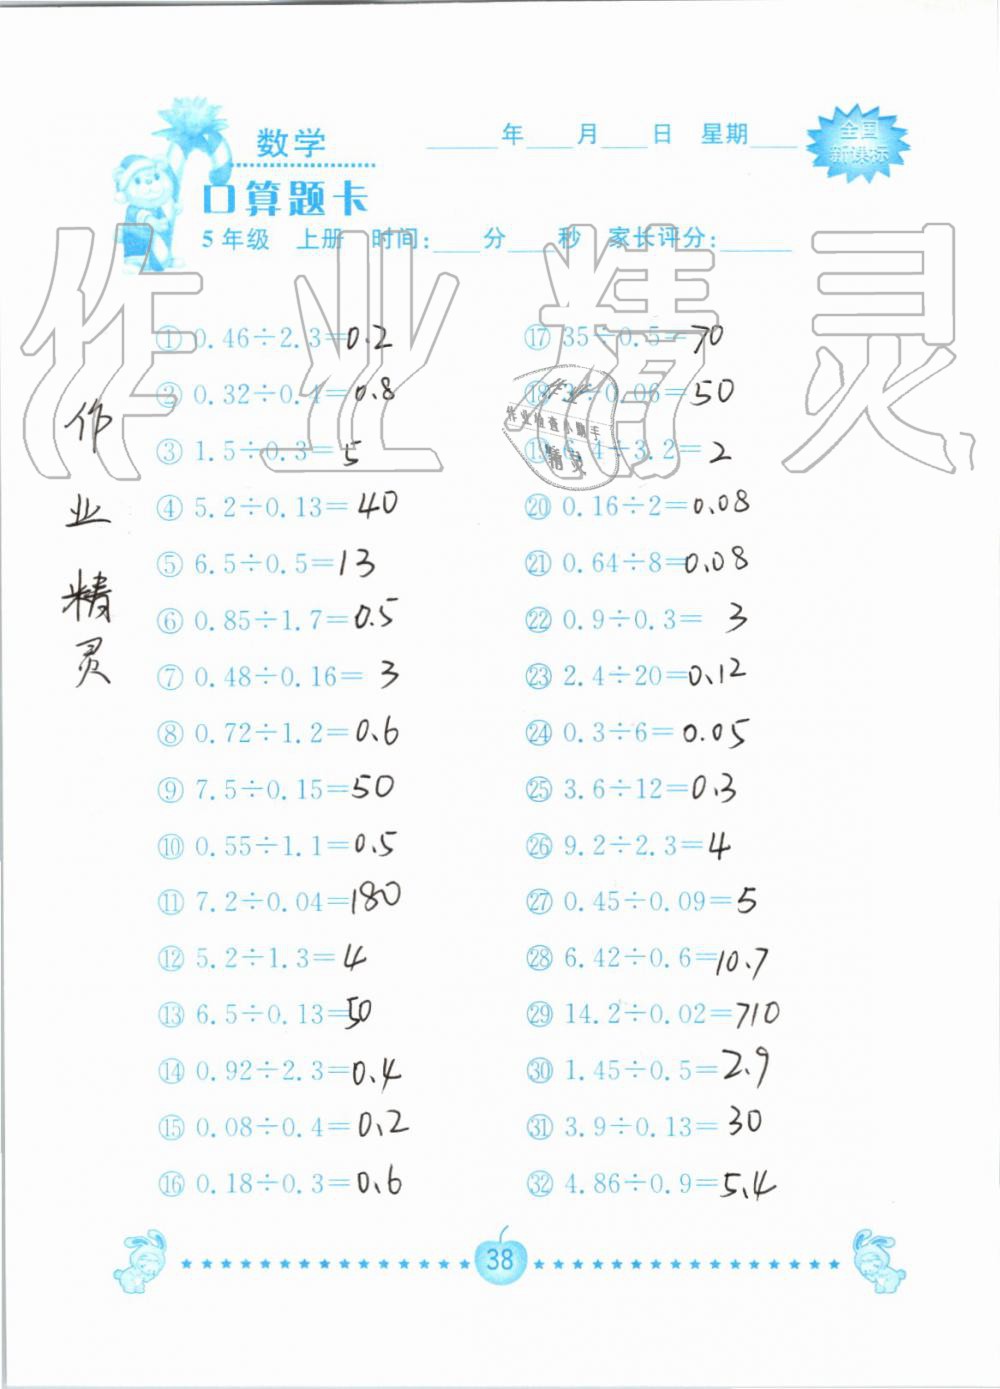 数学
____年____月____日 星期____
全国
新课标
口算题卡
5年级 上册 时间:____分____秒 家长评分:______
作业精灵
① 0.46÷2.3=0.2
② 0.32÷0.4=0.8
③ 1.5÷0.3=5
④ 5.2÷0.13=40
⑤ 6.5÷0.5=13
⑥ 0.85÷1.7=0.5
⑦ 0.48÷0.16=3
⑧ 0.72÷1.2=0.6
⑨ 7.5÷0.15=50
⑩ 0.55÷1.1=0.5
⑪ 7.2÷0.04=180
⑫ 5.2÷1.3=4
⑬ 6.5÷0.13=50
⑭ 0.92÷2.3=0.4
⑮ 0.08÷0.4=0.2
⑯ 0.18÷0.3=0.6
⑰ 35÷0.5=70
⑱ 3÷0.06=50
⑲ 6.4÷3.2=2
⑳ 0.16÷2=0.08
㉑ 0.64÷8=0.08
㉒ 0.9÷0.3=3
㉓ 2.4÷20=0.12
㉔ 0.3÷6=0.05
㉕ 3.6÷12=0.3
㉖ 9.2÷2.3=4
㉗ 0.45÷0.09=5
㉘ 6.42÷0.6=10.7
㉙ 14.2÷0.02=710
㉚ 1.45÷0.5=2.9
㉛ 3.9÷0.13=30
㉜ 4.86÷0.9=5.4
作
业
精
灵
作业
作业检查小助手
精灵
38